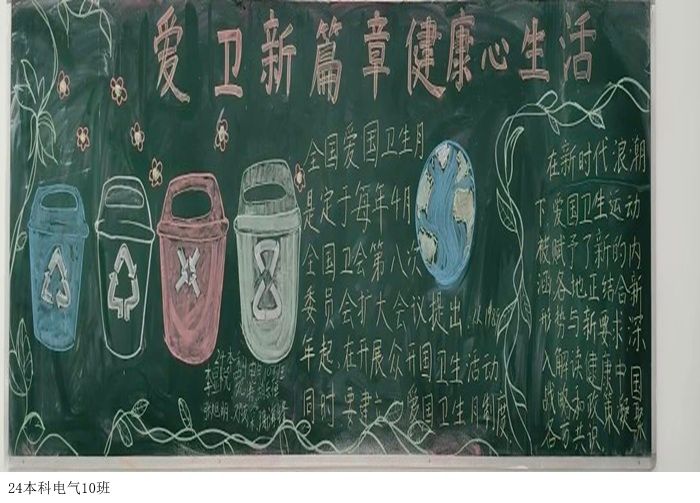 爱卫新篇章健康心生活
全国爱国卫生月
是定于每年4月
全国卫会第八次
委员会扩大会议提出.从198
年起,在开展众开国卫生活动
同时要建立 爱国卫生月制度
在新时代浪潮
下,爱国卫生运动
被赋予了新的内
涵各地正结合新
形势与新要求深
入解读健康中国
战略和政策凝聚
各方共识
24本科电气10班